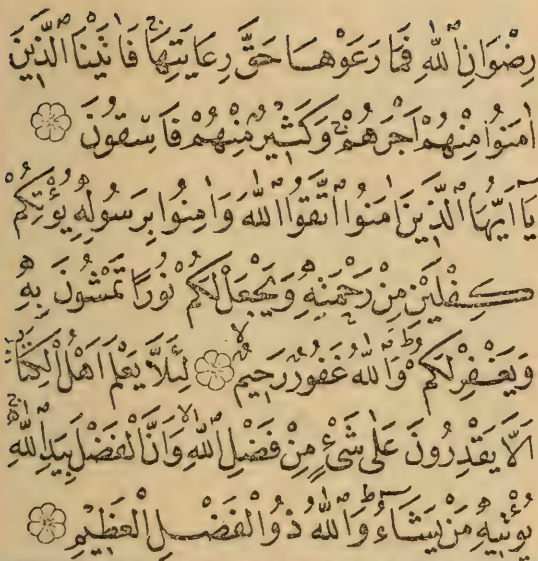 رِضْوَانِ اللّٰهِ فَمَا رَعَوْهَا حَقَّ رِعَايَتِهَا ۚ فَاٰتَيْنَا الَّذِينَ
اٰمَنُوا مِنْهُمْ اَجْرَهُمْ ۚ وَكَثِيرٌ مِنْهُمْ فَاسِقُونَ ۝
يَٓا اَيُّهَا الَّذِينَ اٰمَنُوا اتَّقُوا اللّٰهَ وَاٰمِنُوا بِرَسُولِهِ يُؤْتِكُمْ
كِفْلَيْنِ مِنْ رَحْمَتِهِ وَيَجْعَلْ لَكُمْ نُورًا تَمْشُونَ بِهِ
وَيَغْفِرْ لَكُمْ ۜ وَاللّٰهُ غَفُورٌ رَحِيمٌ ۙ ۝ لِئَلَّا يَعْلَمَ اَهْلُ الْكِتَابِ
اَلَّا يَقْدِرُونَ عَلٰى شَيْءٍ مِنْ فَضْلِ اللّٰهِ ۙ وَاَنَّ الْفَضْلَ بِيَدِ اللّٰهِ
يُؤْتِيهِ مَنْ يَشَٓاءُ ۜ وَاللّٰهُ ذُو الْفَضْلِ الْعَظِيمِ ۝